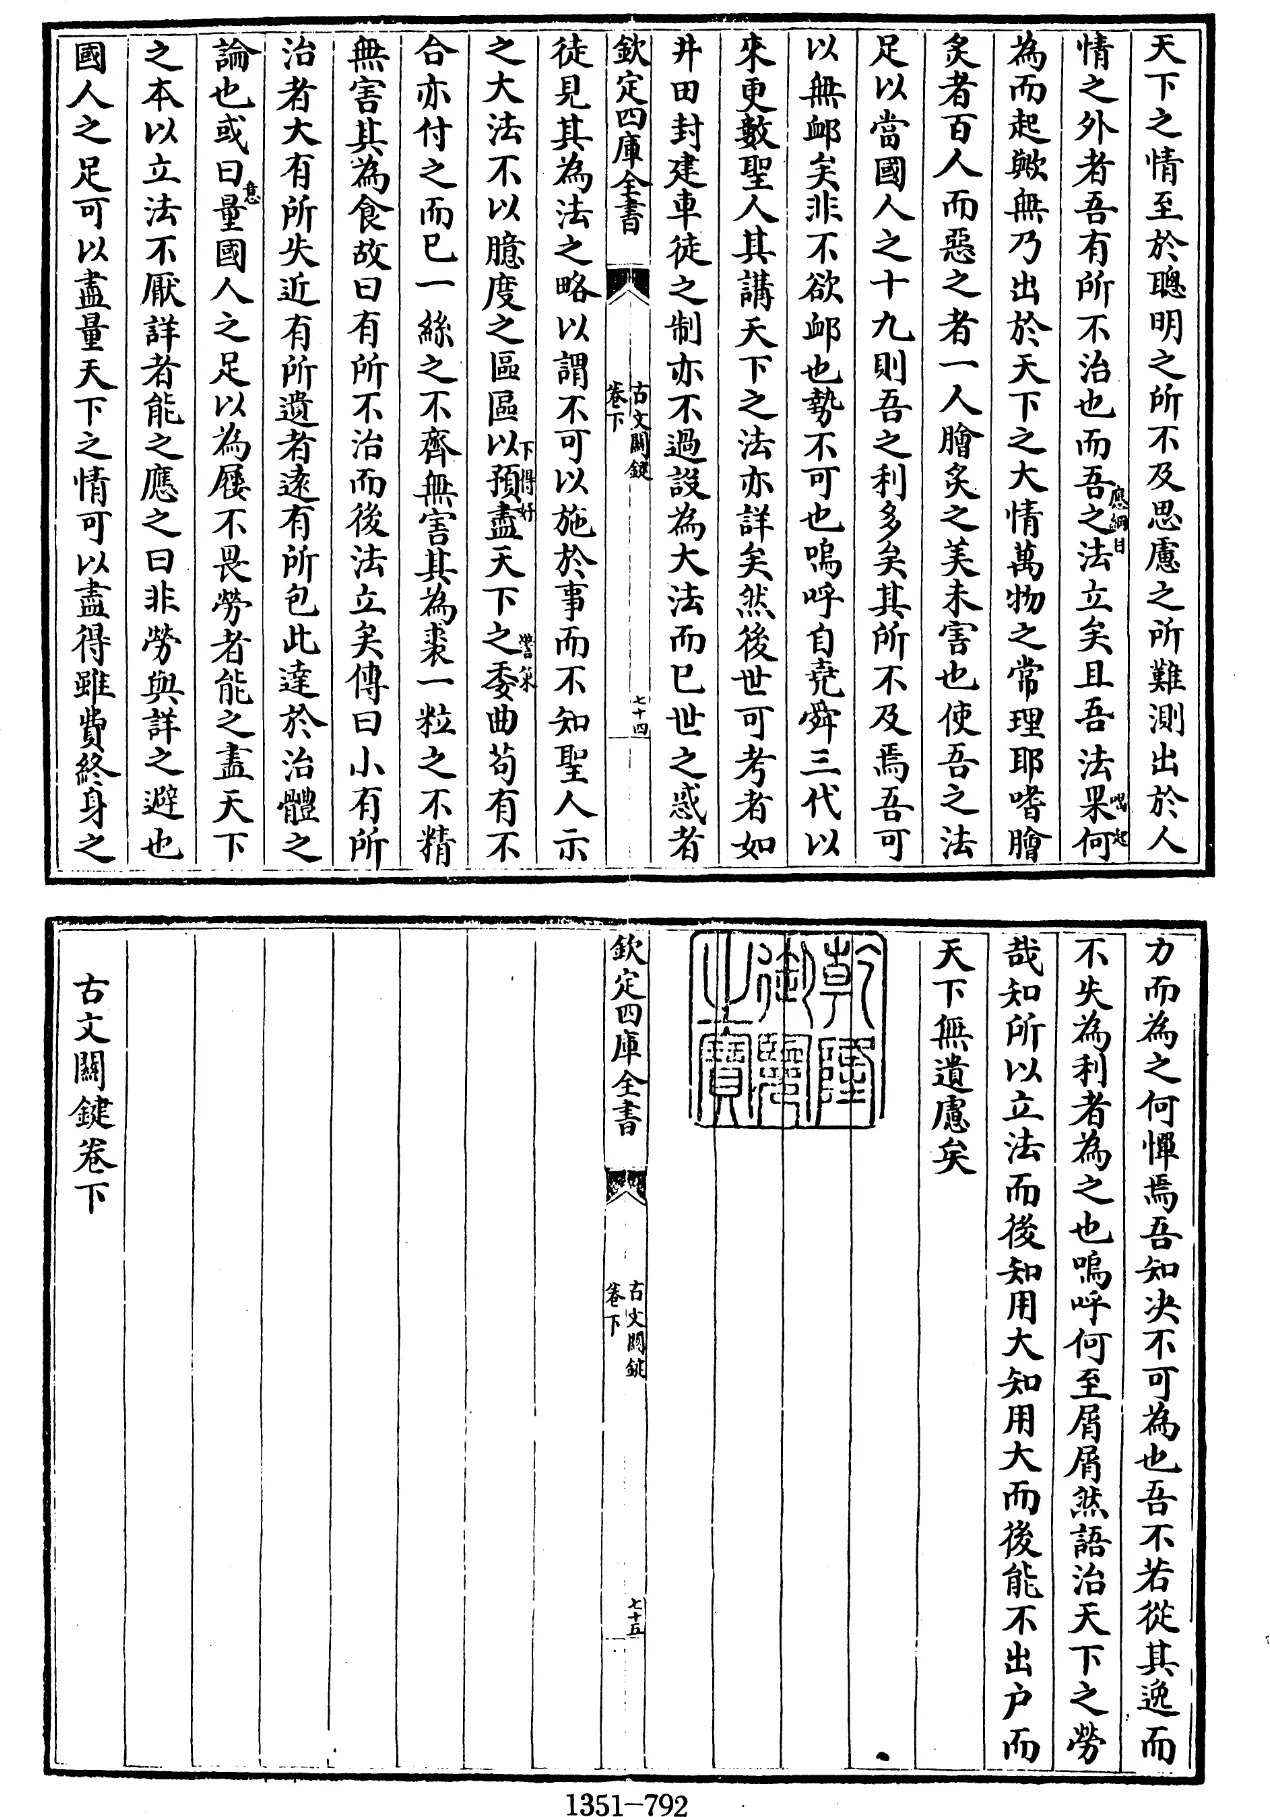 天下之情至於聰明之所不及思慮之所難測出於人
情之外者吾有所不治也而吾之法立矣且吾法果何
應綱目
喚起
為而起歟無乃出於天下之大情萬物之常理耶嗜膾
炙者百人而惡之者一人膾炙之美未害也使吾之法
足以當國人之十九則吾之利多矣其所不及焉吾可
以無卹矣非不欲卹也勢不可也嗚呼自堯舜三代以
來更數聖人其講天下之法亦詳矣然後世可考者如
井田封建車徒之制亦不過設為大法而已世之惑者
欽定四庫全書
古文關鍵
卷下
七十四
徒見其為法之略以謂不可以施於事而不知聖人示
之大法不以臆度之區區以預盡天下之委曲茍有不
下得好
合亦付之而已一絲之不齊無害其為裘一粒之不精
無害其為食故曰有所不治而後法立矣傳曰小有所
治者大有所失近有所遺者遠有所包此達於治體之
論也或曰量國人之足以為屨不畏勞者能之盡天下
意
之本以立法不厭詳者能之應之曰非勞與詳之避也
國人之足可以盡量天下之情可以盡得雖費終身之
力而為之何憚焉吾知決不可為也吾不若從其逸而
不失為利者為之也嗚呼何至屑屑然語治天下之勞
哉知所以立法而後知用大知用大而後能不出户而
天下無遺慮矣
乾隆
御覽
之寶
欽定四庫全書
古文關鍵
卷下
七十五
古文關鍵卷下
1351-792